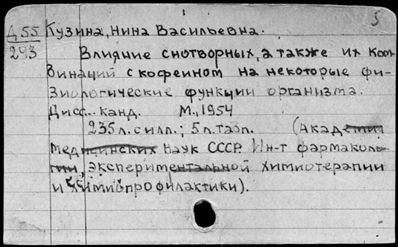 5
Д55 Кузина, Нина Васильевна.
293
Влияние снотворных, а также их ком-
бинаций с кофеином на некоторые фи-
зиологические функции организма.
Дисс. канд. М., 1954
235 л. с илл.; 5 л. табл. (Академия
медицинских наук СССР. Ин-т фармаколо-
гии, экспериментальной химиотерапии
и химиопрофилактики).